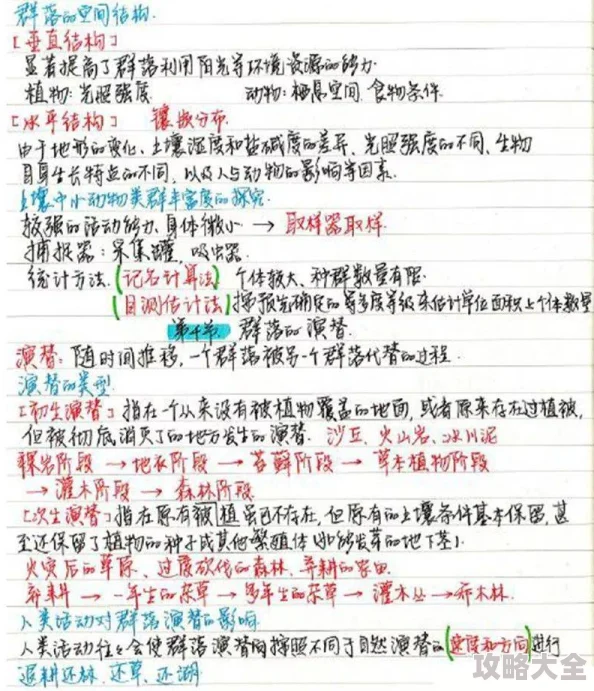 群落的空间结构.
[垂直结构]
显著提高了群落利用阳光等环境资源的能力
植物:光照强度 动物:栖息空间、食物条件.
[水平结构] 镶嵌分布.
由于地形的变化、土壤湿度和盐碱度的差异、光照强度的不同、生物
自身生长特点的不同,以及人与动物的影响等因素.
土壤中小动物类群丰富度的探究.
较强的活动能力、身体微小 → 取样器取样.
捕捉器:采集罐,吸虫器.
统计方法.(记名计算法) 个体较大、种群数量有限.
(目测估计法) 按预先确定的多度等级来估计单位面积上个体数量
第4节. 群落的演替.
演替:随时间推移,一个群落被另一个群落代替的过程.
演替的类型.
[初生演替]指在一个从来没有被植物覆盖的地面,或者原来存在过植被,
但被彻底消灭了的地方发生的演替. 沙丘、火山岩、冰川泥
裸岩阶段 → 地衣阶段 → 苔藓阶段 → 草本植物阶段
→ 灌木阶段 → 森林阶段
[次生演替]指在原有被植虽已不存在,但原有的土壤条件基本保留,甚
至还保留了植物的种子或其他繁殖体(如能发芽的地下茎).
火灾后的草原、过度砍伐的森林、弃耕的农田
弃耕 → 一年生的杂草 → 多年生的杂草 → 灌木丛 → 乔木林.
人类活动对群落演替的影响
人类活动往往会使群落演替向按照不同于自然演替的(速度和方向)进行
退耕还林、还草、还湖
攻略大全